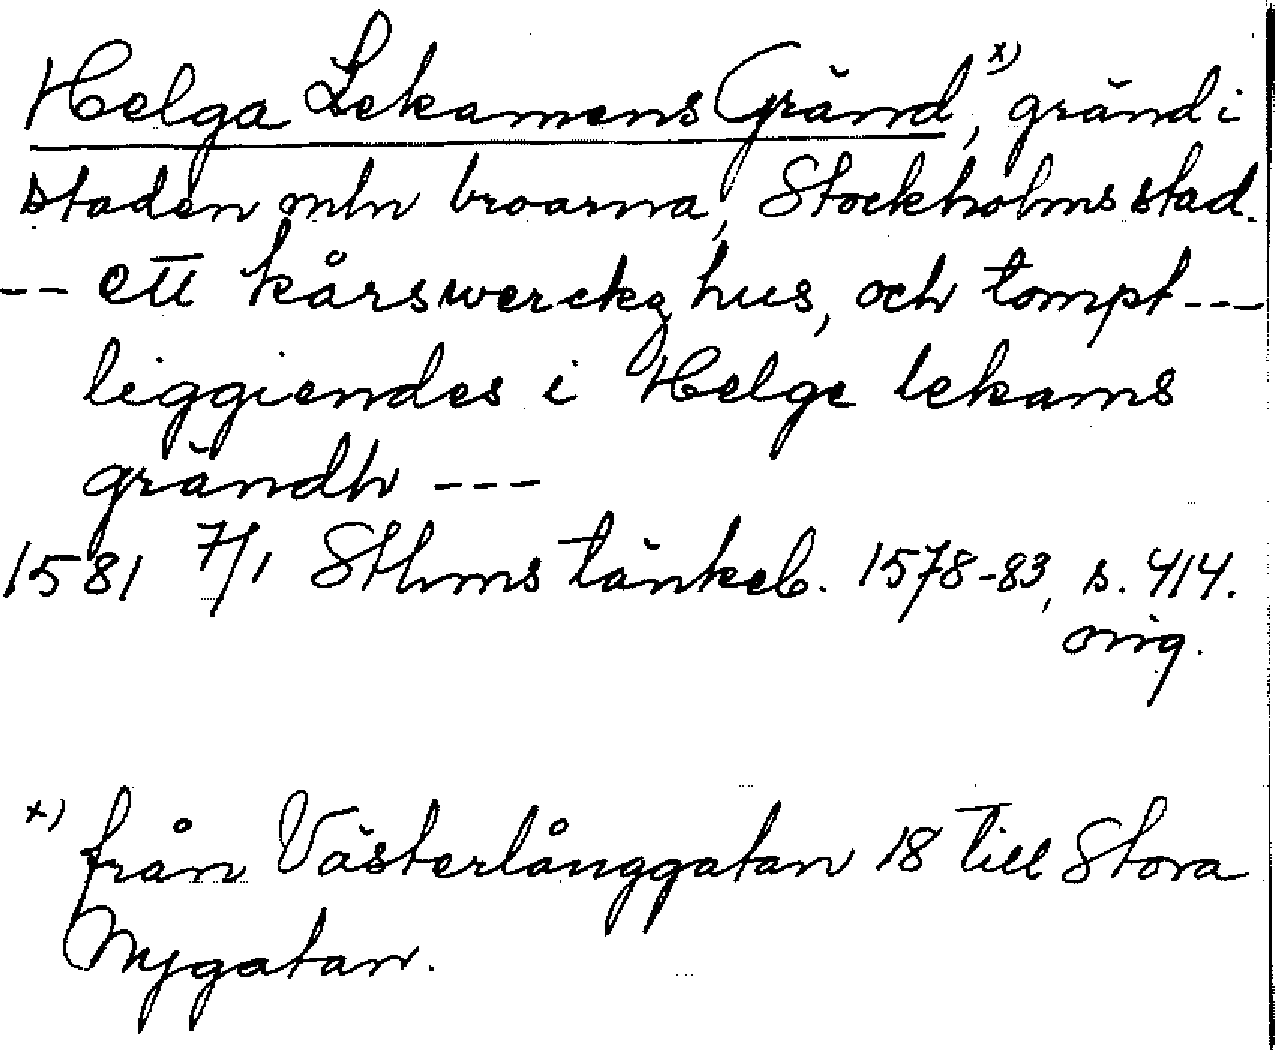 Helga Lekamens Gränd x), gränd i
staden mln broarna, Stockholms stad.
--- ett kårswercks hus, och tompt ---
liggiendes i Helge lekams
grändh ---
1581 7/1 Sthms tänkeb. 1578-83, s. 414.
orig.
x) från Västerlånggatan 18 till Stora
Nygatan.